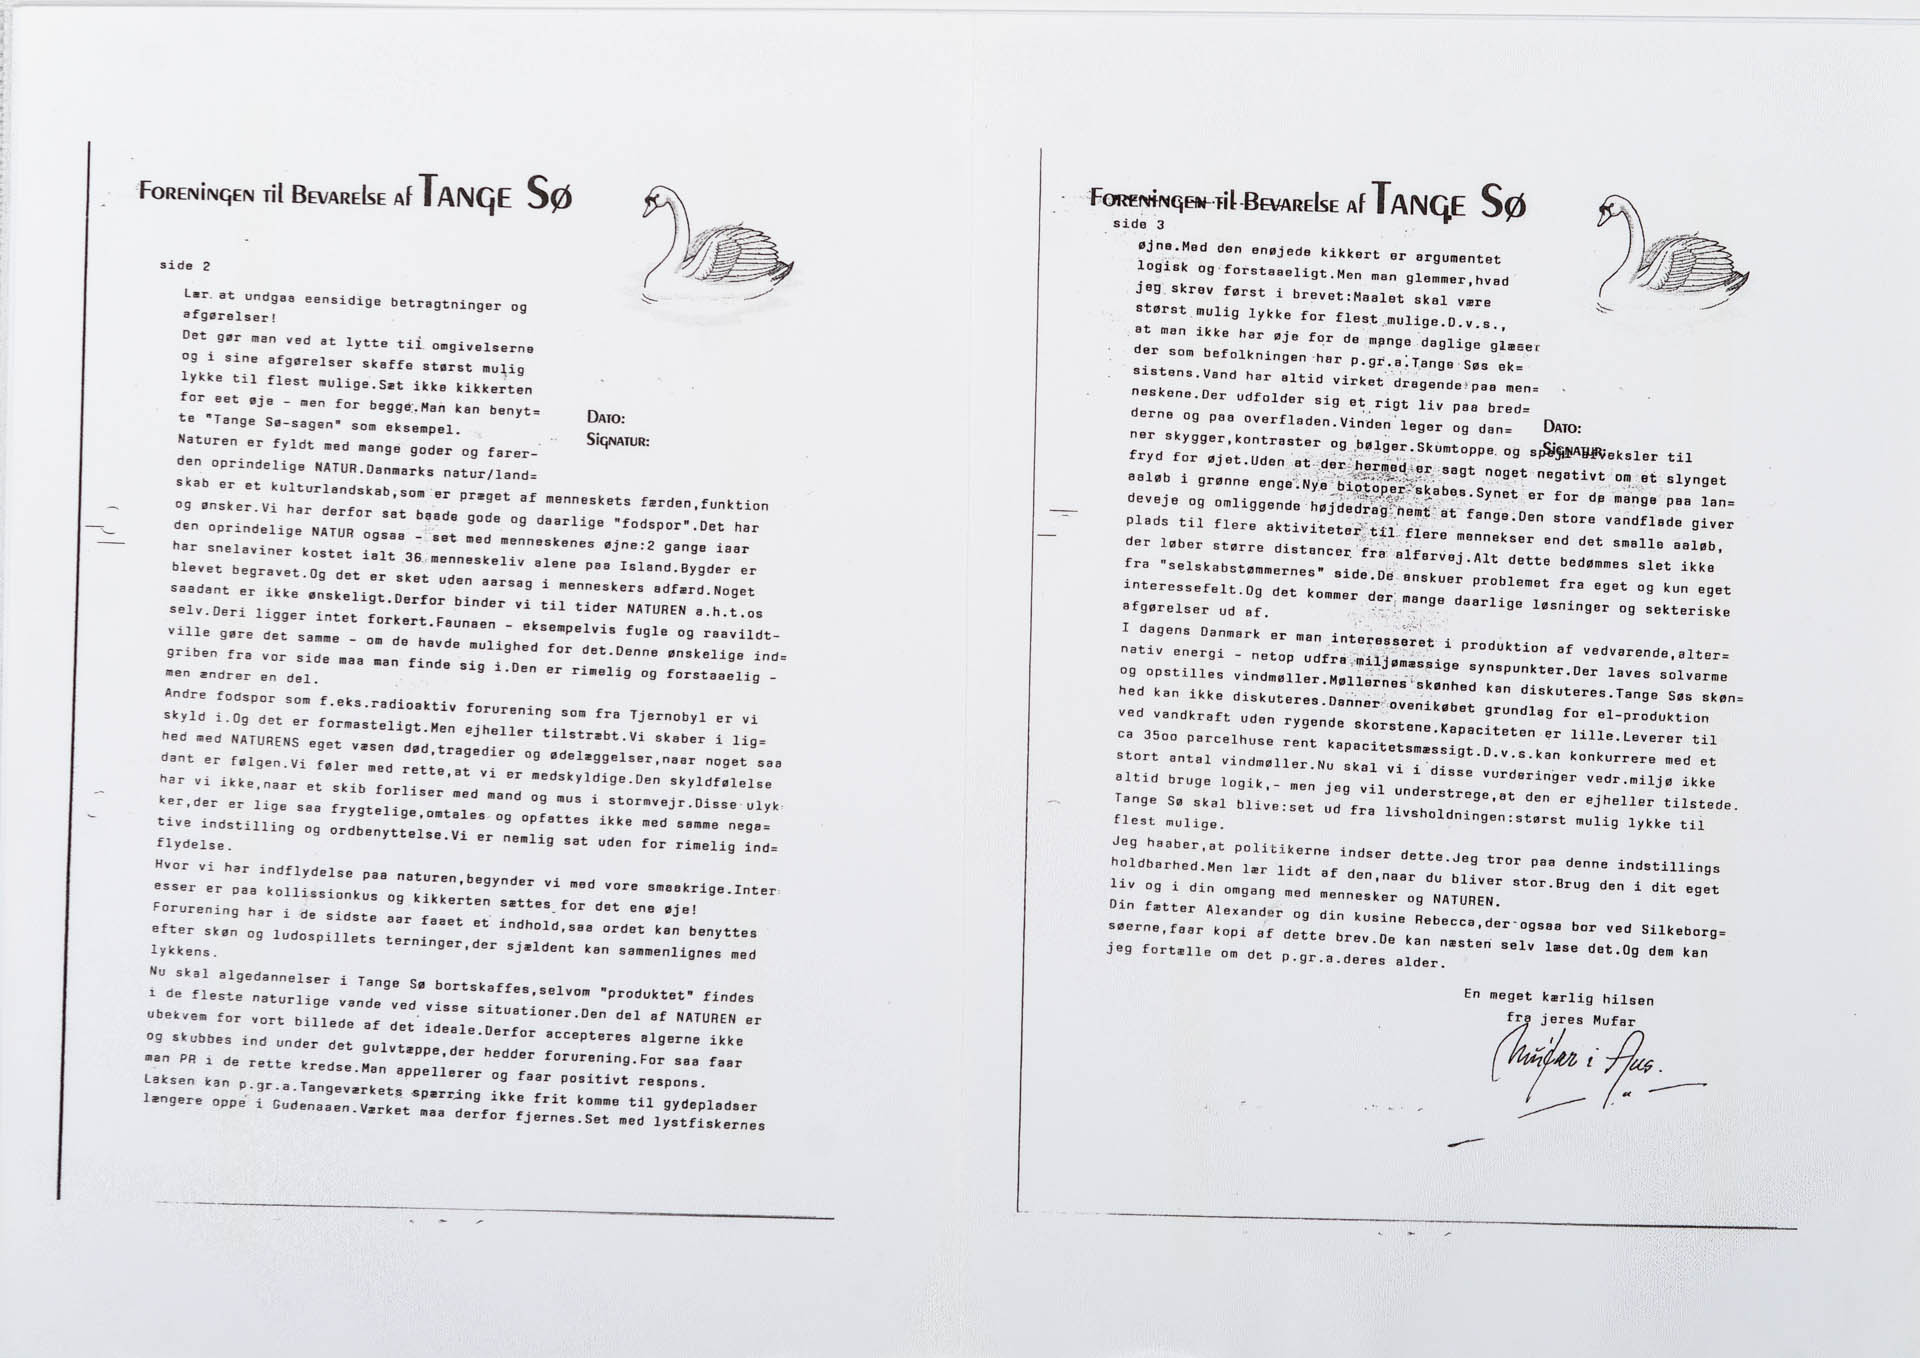 Foreningen til Bevarelse af Tange Sø
side 2
Lær at undgaa eensidige betragtninger og
afgørelser!
Det gør man ved at lytte til omgivelserne
og i sine afgørelser skaffe størst mulig
lykke til flest mulige.Sæt ikke kikkerten
for eet øje - men for begge.Man kan benyt=
te "Tange Sø-sagen" som eksempel.
Dato:
Signatur:
Naturen er fyldt med mange goder og farer-
den oprindelige NATUR.Danmarks natur/land=
skab er et kulturlandskab,som er præget af menneskets færden,funktion
og ønsker.Vi har derfor sat baade gode og daarlige "fodspor".Det har
den oprindelige NATUR ogsaa - set med menneskenes øjne:2 gange iaar
har snelaviner kostet ialt 36 menneskeliv alene paa Island.Bygder er
blevet begravet.Og det er sket uden aarsag i menneskers adfærd.Noget
saadant er ikke ønskeligt.Derfor binder vi til tider NATUREN a.h.t.os
selv.Deri ligger intet forkert.Faunaen - eksempelvis fugle og raavildt-
ville gøre det samme - om de havde mulighed for det.Denne ønskelige ind=
griben fra vor side maa man finde sig i.Den er rimelig og forstaaelig -
men ændrer en del.
Andre fodspor som f.eks.radioaktiv forurening som fra Tjernobyl er vi
skyld i.Og det er formasteligt.Men ejheller tilstræbt.Vi skaber i lig=
hed med NATURENS eget væsen død,tragedier og ødelæggelser,naar noget saa
dant er følgen.Vi føler med rette,at vi er medskyldige.Den skyldfølelse
har vi ikke,naar et skib forliser med mand og mus i stormvejr.Disse ulyk
ker,der er lige saa frygtelige,omtales og opfattes ikke med samme nega=
tive indstilling og ordbenyttelse.Vi er nemlig sat uden for rimelig ind=
flydelse.
Hvor vi har indflydelse paa naturen,begynder vi med vore smaakrige.Inter
esser er paa kollissionkus og kikkerten sættes for det ene øje!
Forurening har i de sidste aar faaet et indhold,saa ordet kan benyttes
efter skøn og ludospillets terninger,der sjældent kan sammenlignes med
lykkens.
Nu skal algedannelser i Tange Sø bortskaffes,selvom "produktet" findes
i de fleste naturlige vande ved visse situationer.Den del af NATUREN er
ubekvem for vort billede af det ideale.Derfor accepteres algerne ikke
og skubbes ind under det gulvtæppe,der hedder forurening.For saa faar
man PR i de rette kredse.Man appellerer og faar positivt respons.
Laksen kan p.gr.a.Tangeværkets spærring ikke frit komme til gydepladser
længere oppe i Gudenaaen.Værket maa derfor fjernes.Set med lystfiskernes
Foreningen til Bevarelse af Tange Sø
side 3
øjne.Med den enøjede kikkert er argumentet
logisk og forstaaeligt.Men man glemmer,hvad
jeg skrev først i brevet:Maalet skal være
størst mulig lykke for flest mulige.D.v.s.,
at man ikke har øje for de mange daglige glæser
der som befolkningen har p.gr.a.Tange Søs ek=
sistens.Vand har altid virket dragende paa men=
neskene.Der udfolder sig et rigt liv paa bred=
derne og paa overfladen.Vinden leger og dan=
Dato:
Signatur:
ner skygger,kontraster og bølger.Skumtoppe og spejl veksler til
fryd for øjet.Uden at der hermed er sagt noget negativt om et slynget
aaløb i grønne enge.Nye biotoper skabes.Synet er for de mange paa lan=
deveje og omliggende højdedrag nemt at fange.Den store vandflade giver
plads til flere aktiviteter til flere mennekser end det smalle aaløb,
der løber større distancer fra alfarvej.Alt dette bedømmes slet ikke
fra "selskabstømmernes" side.De anskuer problemet fra eget og kun eget
interessefelt.Og det kommer der mange daarlige løsninger og sekteriske
afgørelser ud af.
I dagens Danmark er man interesseret i produktion af vedvarende,alter=
nativ energi - netop udfra miljømæssige synspunkter.Der laves solvarme
og opstilles vindmøller.Møllernes skønhed kan diskuteres.Tange Søs skøn=
hed kan ikke diskuteres.Danner ovenikøbet grundlag for el-produktion
ved vandkraft uden rygende skorstene.Kapaciteten er lille.Leverer til
ca 35oo parcelhuse rent kapacitetsmæssigt.D.v.s.kan konkurrere med et
stort antal vindmøller.Nu skal vi i disse vurderinger vedr.miljø ikke
altid bruge logik,- men jeg vil understrege,at den er ejheller tilstede.
Tange Sø skal blive:set ud fra livsholdningen:størst mulig lykke til
flest mulige.
Jeg haaber,at politikerne indser dette.Jeg tror paa denne indstillings
holdbarhed.Men lær lidt af den,naar du bliver stor.Brug den i dit eget
liv og i din omgang med mennesker og NATUREN.
Din fætter Alexander og din kusine Rebecca,der ogsaa bor ved Silkeborg=
søerne,faar kopi af dette brev.De kan næsten selv læse det.Og dem kan
jeg fortælle om det p.gr.a.deres alder.
En meget kærlig hilsen
fra jeres Mufar
Mufar i Aus.